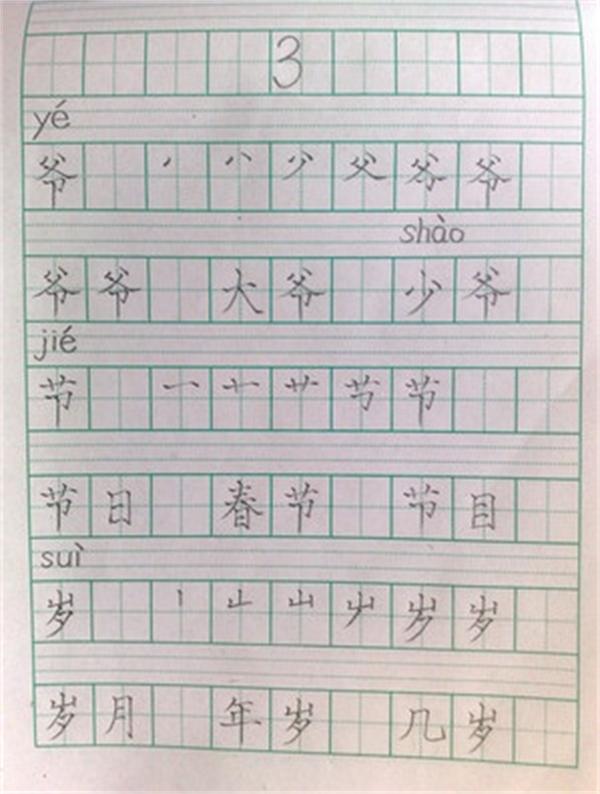 3
yé
爷 丶 八 少 父 爷 爷
shào
爷爷 大爷 少爷
jié
节 一 十 艹 节 节
节日 春节 节目
suì
岁 丨 山 山 岁 岁
岁月 年岁 几岁